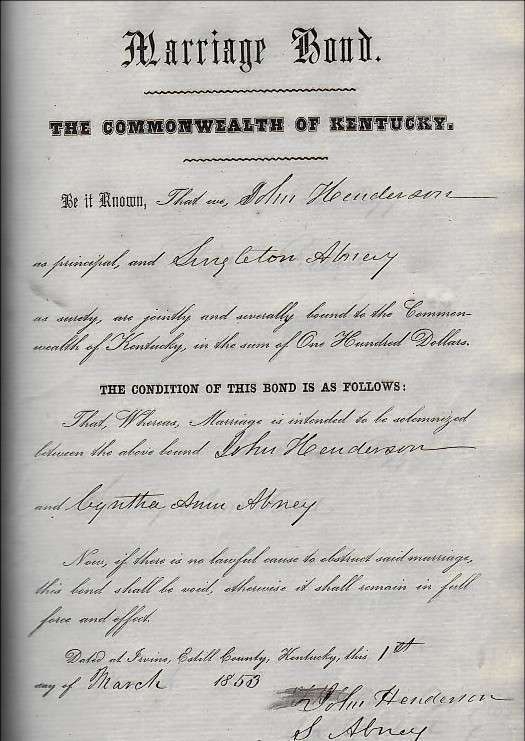 Marriage Bond.
THE COMMONWEALTH OF KENTUCKY.
Be it Known, That we, John Henderson
as principal, and Singleton Abney
as surety, are jointly and severally bound to the Common-
wealth of Kentucky, in the sum of One Hundred Dollars.
THE CONDITION OF THIS BOND IS AS FOLLOWS:
That, Whereas, Marriage is intended to be solemnized
between the above bound John Henderson
and Cyntha Ann Abney
Now, if there is no lawful cause to obstruct said marriage,
this bond shall be void, otherwise it shall remain in full
force and effect.
Dated at Irvine, Estill County, Kentucky, this 1st
day of March 1853
John Henderson
S Abney